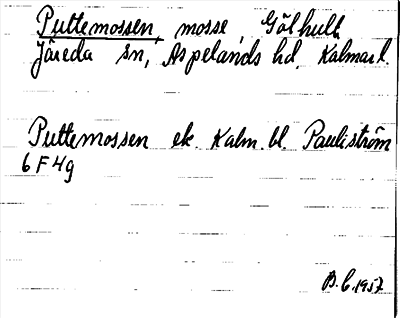 Puttemossen, mosse, Gölhult
Järeda sn, Aspelands hd, Kalmar l.
Puttemossen ek. Kalm. bl. Pauliström
6 F 4g
B. C. 1957